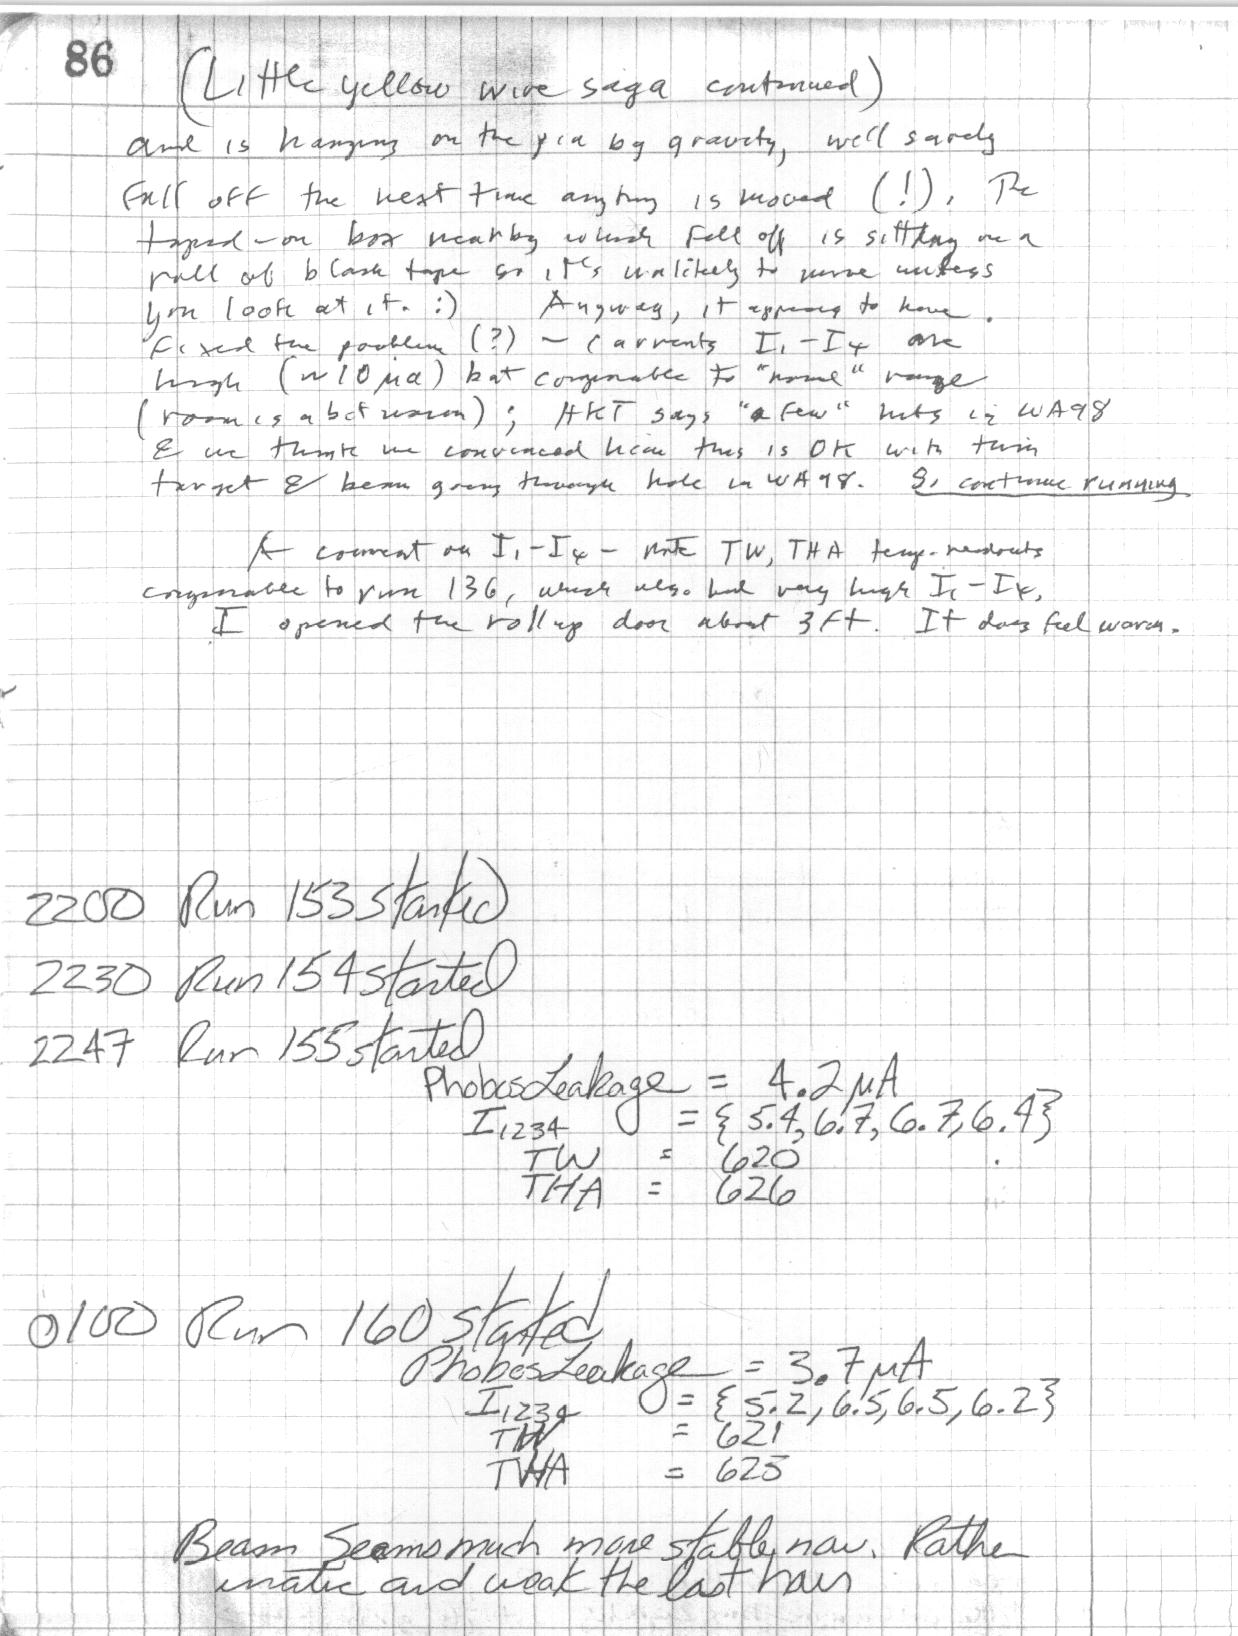 86
(Little yellow wire saga continued)
and is hanging on the pin by gravity, will surely
fall off the next time anything is moved (!). The
taped-on box nearby which fell off is sitting on a
roll of black tape so it's unlikely to move unless
you look at it. :) Anyway, it appears to have
fixed the problem (?) - currents I1-I4 are
high (~10 μa) but comparable to "normal" range
(room is a bit warm); HKT says "a few" hits in WA98
& we think we convinced him this is OK with thin
target & beam going through hole in WA98. So continue running
A comment on I1-I4 - note TW, THA temp. readouts
comparable to run 136, which also had very high I1-I4.
I opened the rollup door about 3ft. It does feel warm.
2200 Run 153 started
2230 Run 154 started
2247 Run 155 started
Phobos Leakage = 4.2 μA
I1234 = {5.4, 6.7, 6.7, 6.4}
TW = 620
THA = 626
0100 Run 160 started
Phobos Leakage = 3.7 μA
I1234 = {5.2, 6.5, 6.5, 6.2}
TW = 621
THA = 625
Beam Seems much more stable now. Rather
eratic and weak the last hour